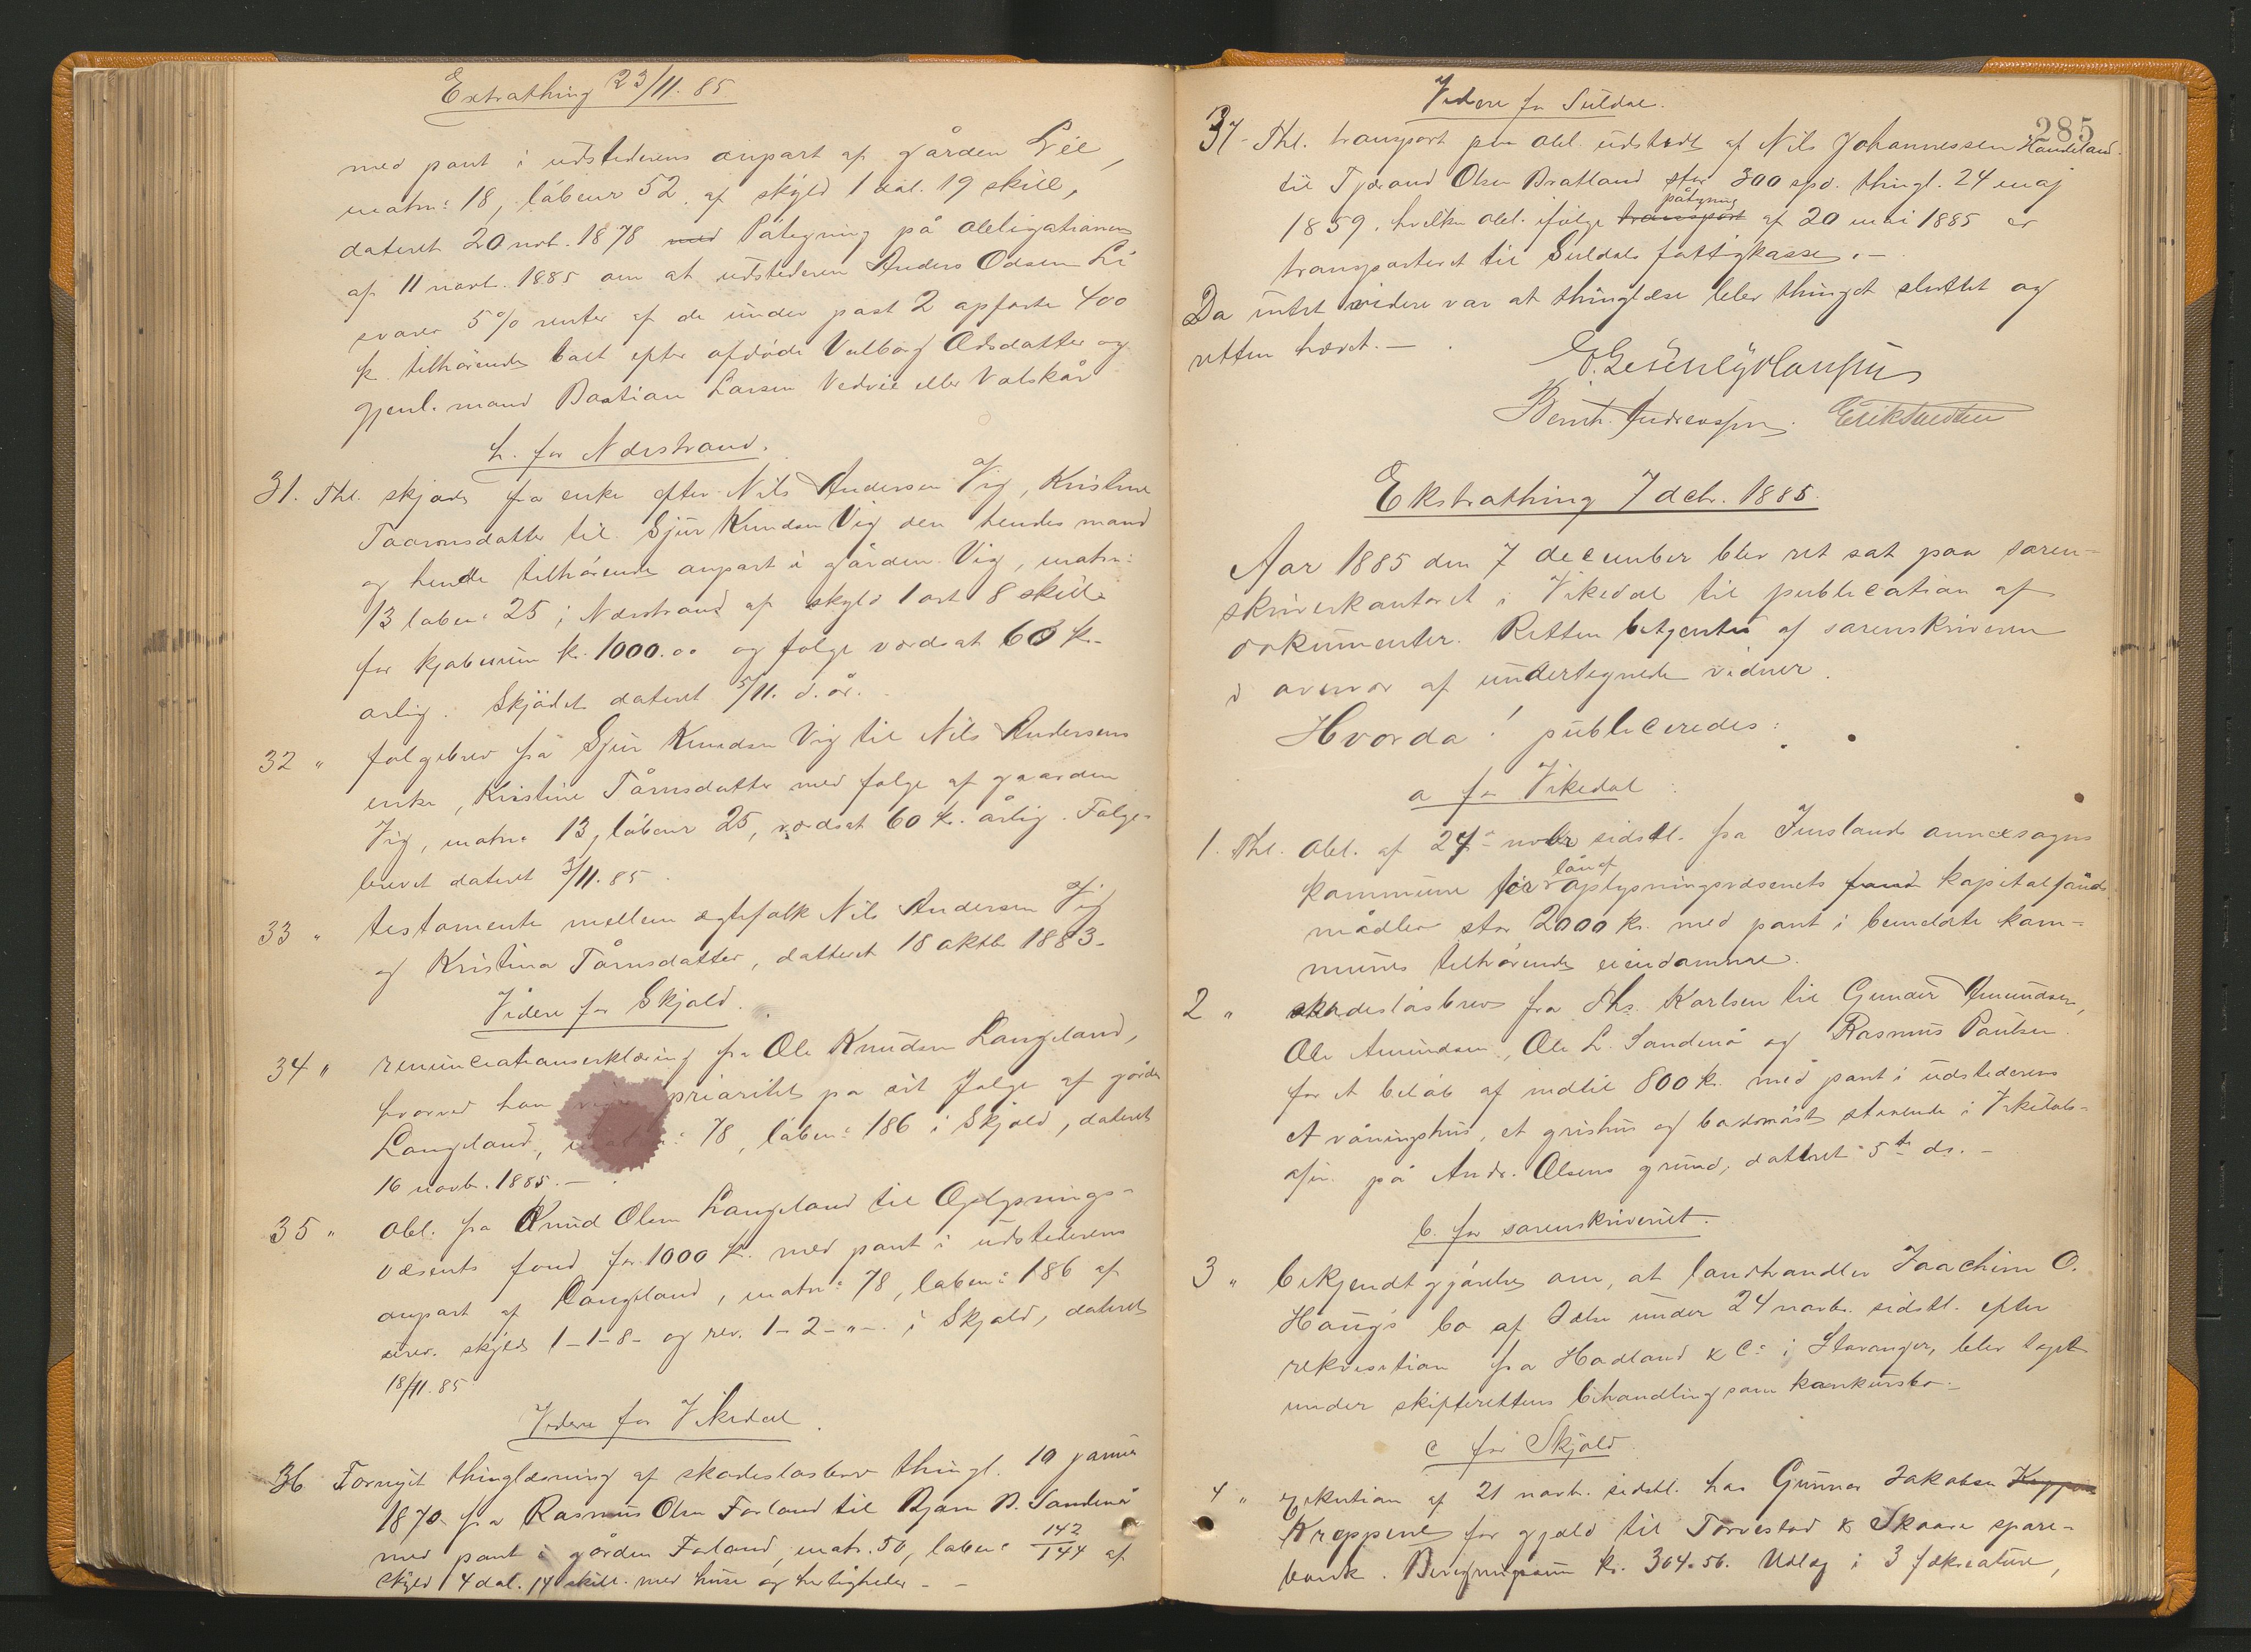 Extrathing 23/11. 85
med pant i udstederens anpart af gården Lie,
matn: 18, löbenr 52 af skyld 1 dal. 19 skill,
dateret 20 nob. 1878 med Påtegning på obligationen
af 11 novb. 1885 om at udstederen Anders Odsen Li
svarer 5% renter af de under post 2 opførte 400
k. tilhörende boet efter afdöde Valborg Odsdatter og
gjenl. mand Bastian Larsen Vedvik eller Valskår
h. for Nærstrand.
31. Thl. skjøde fra enke efter Nils Andersen Vig, Kristine
Taarnsdatter til Sjur Knudsen Vig den hendes mand
og hende tilhörende anpart i gården Vig, matn:
13 löben: 25 i Nærstrand af skyld 1 ort 8 skill.
for kjøbesum k. 1000.00 og følge værdsat 60 k.
årlig. Skjödet dateret 5/11. d. år.
32 " følgebrev frå Sjur Knudsen Vig til Nils Andersens
enke, Kristine Tårnsdatter med følge af gaarden
Vig, matn: 13, löbenr 25, værdsat 60 k. årlig. Følge-
brevet dateret 5/11. 85.
33 " testamente mellem ægtefolk Nils Andersen Vig
og Kristina Tårnsdatter, datteret 18 oktb 1883.
Videre for Skjold.
34 " renunciationserklæring fra Ole Knudsen Langeland,
hvorved han prioritet på sit følge af gården
Langeland, matn: 78, löben: 186 i Skjold, dateret
16 novb. 1885.-
35 " obl. fra Knud Olsen Langeland til Oplysnings-
væsents fond for 1000 k. med pant i udstederens
anpart af Langeland, matn: 78, löben: 186 af
urev. skyld 1-1-8- og rev. 1-2-"-. i Skjold, dateret
18/11. 85
Videre for Vikedal.
36 Fornyit thinglæsning af skadeslosbrev thingl. 10 januar
1870 fra Rasmus Olsen Forland til Bjørn B. Sandenå
med pant i gården Forland, matr. 50, löben: 142/144 af
skyld 4 dal. 14 skill. med huse og herligheder - -
285
Videre for Suldal.
37- Thl. transport paa obl. udstedt af Nils Johannessen Handeland
til Tjærand Olsen Bratland stor 300 spd. thingl. 24 maj
påtegning
1859. hvilken obl. ifølge transport af 20 mai 1885 er
transporteret til Suldals fattigkasse.-
Da intet videre var at thinglæse blev thinget sluttet og
retten hævet.-
Bernh. Andreassen. Erik
Ekstrathing 7 dcbr. 1885.
Aar 1885 den 7 december blev ret sat paa soren-
skriverkontoret i Vikedal til publication af
dokumenter. Retten betjentes af sorenskriveren
i overvær af undertegnede vidner.
Hvorda publiceredes:
a for Vikedal:
1. Thl. obl. af 24de novbr sidstl. fra Imslands annexsogns
lån af
kommune for oplysningsvæsenets fond kapitalfond
midler stor 2000 k. med pant i bemeldte kom-
munes tilhörende eiendomme.
2 " skadeslösbrev fra Ths. Karlsen til Gunder Amundsen,
Ole Amundsen, Ole L. Sandenå og Rasmus Paulsen
for et belöb af indtil 800 k. med pant i udstederens
et våningshus, et grishus og staaende i Vikedals-
på Andr. Olsens grund, datteret 5te ds.-
b. for sorenskriveriet.
3 " bekjendtgjörelse om, at landhandler Joachim O.
Haug's bo af Ølen under 24 novbr. sidstl. efter
rekvisition fra Hadland & Co: i Stavanger, blev taget
under skifterettens behandling som konkursbo.-
c for Skjold
4 " Exekution af 21 novb. sidstl. hos Gunnar Jakobsen
Kroppene for gjæld til Torvestad & Skaare spare-
bank. Beregningssum k. 304.56. Udlæg i 3 fækreature,